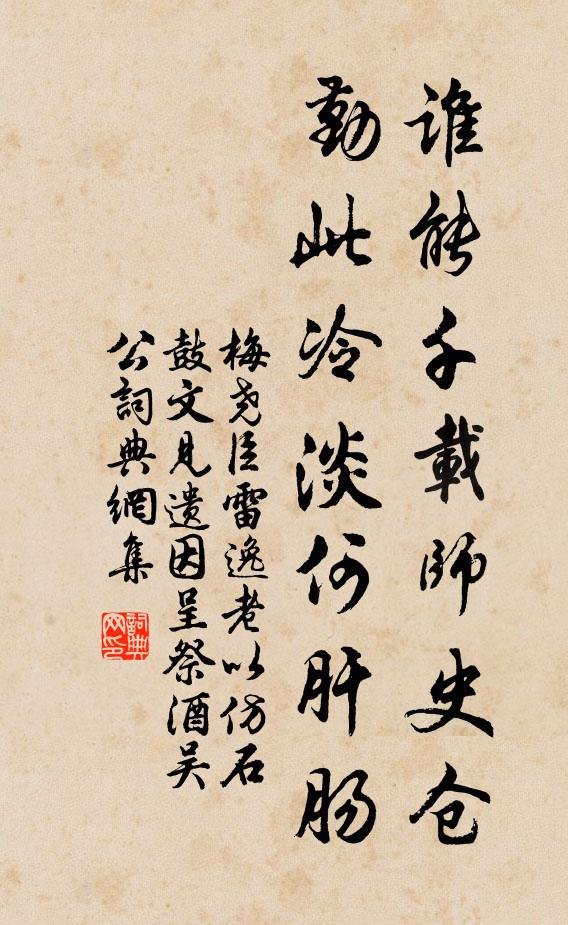 誰能千載師史仓
勤此冷淡何肝肠
梅尧臣雷逸老以仿石
鼓文见遗因呈祭酒吴
公詞典網集
詞典
网印